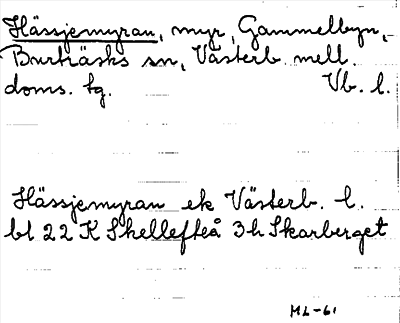 Hässjemyran, myr, Gammelbyn,
Burträsks sn, Västerb. mell.
doms. tg. Vb. l.
Hässjemyran ek Västerb. l.
bl 22 K Skellefteå 3h Skarberget
ML-61